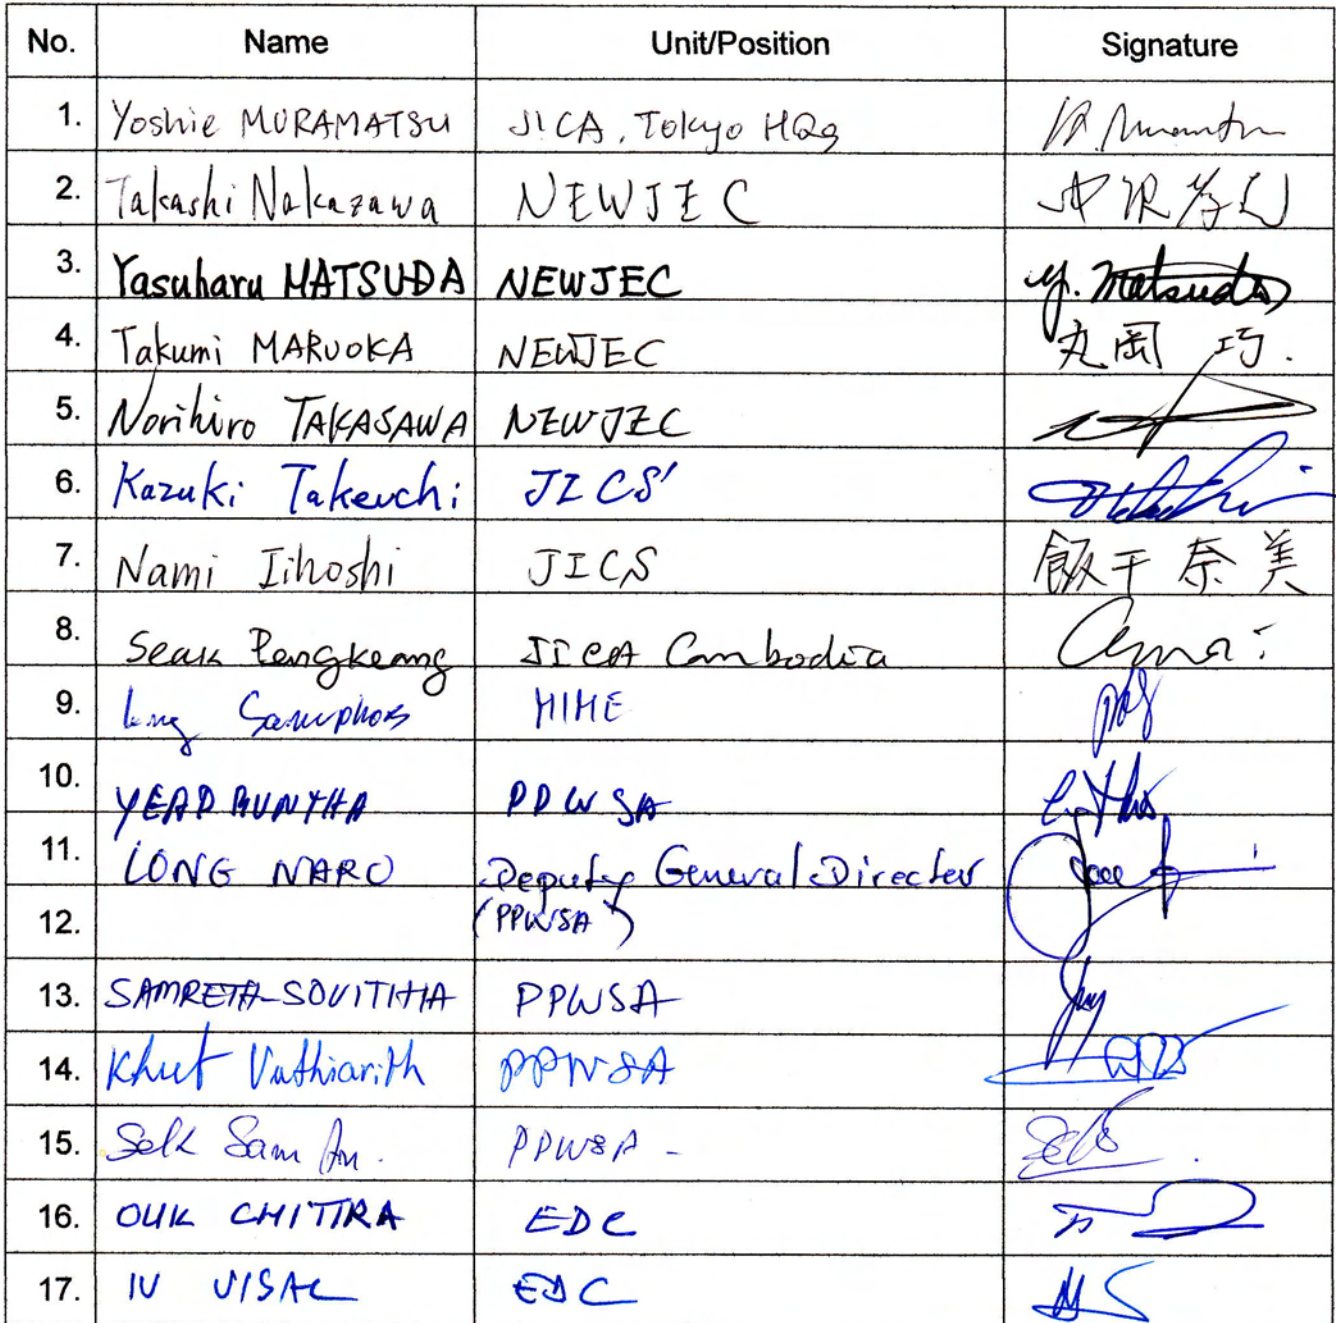 No. Name Unit/Position Signature
1. Yoshie MURAMATSU JICA, Tokyo HQs
2. Takashi Nakazawa NEWJEC
3. Yasuharu MATSUDA NEWJEC y. Matsuda
4. Takumi MARUOKA NEWJEC 丸岡 巧.
5. Norihiro TAKASAWA NEWJEC
6. Kazuki Takeuchi JICS
7. Nami Iihoshi JICS 飯干奈美
8. Seak Pengkeang JICA Cambodia
9. Samphors MIME
10. YEAP BUNTHA PPWSA
11. LONG NARO Deputy General Director
12. (PPWSA)
13. SAMRETH SOVITHIA PPWSA
14. Khut Vuthiarith PPWSA
15. Sek Sam An. PPWSA -
16. OUK CHITTRA EDC
17. IV VISAL EDC